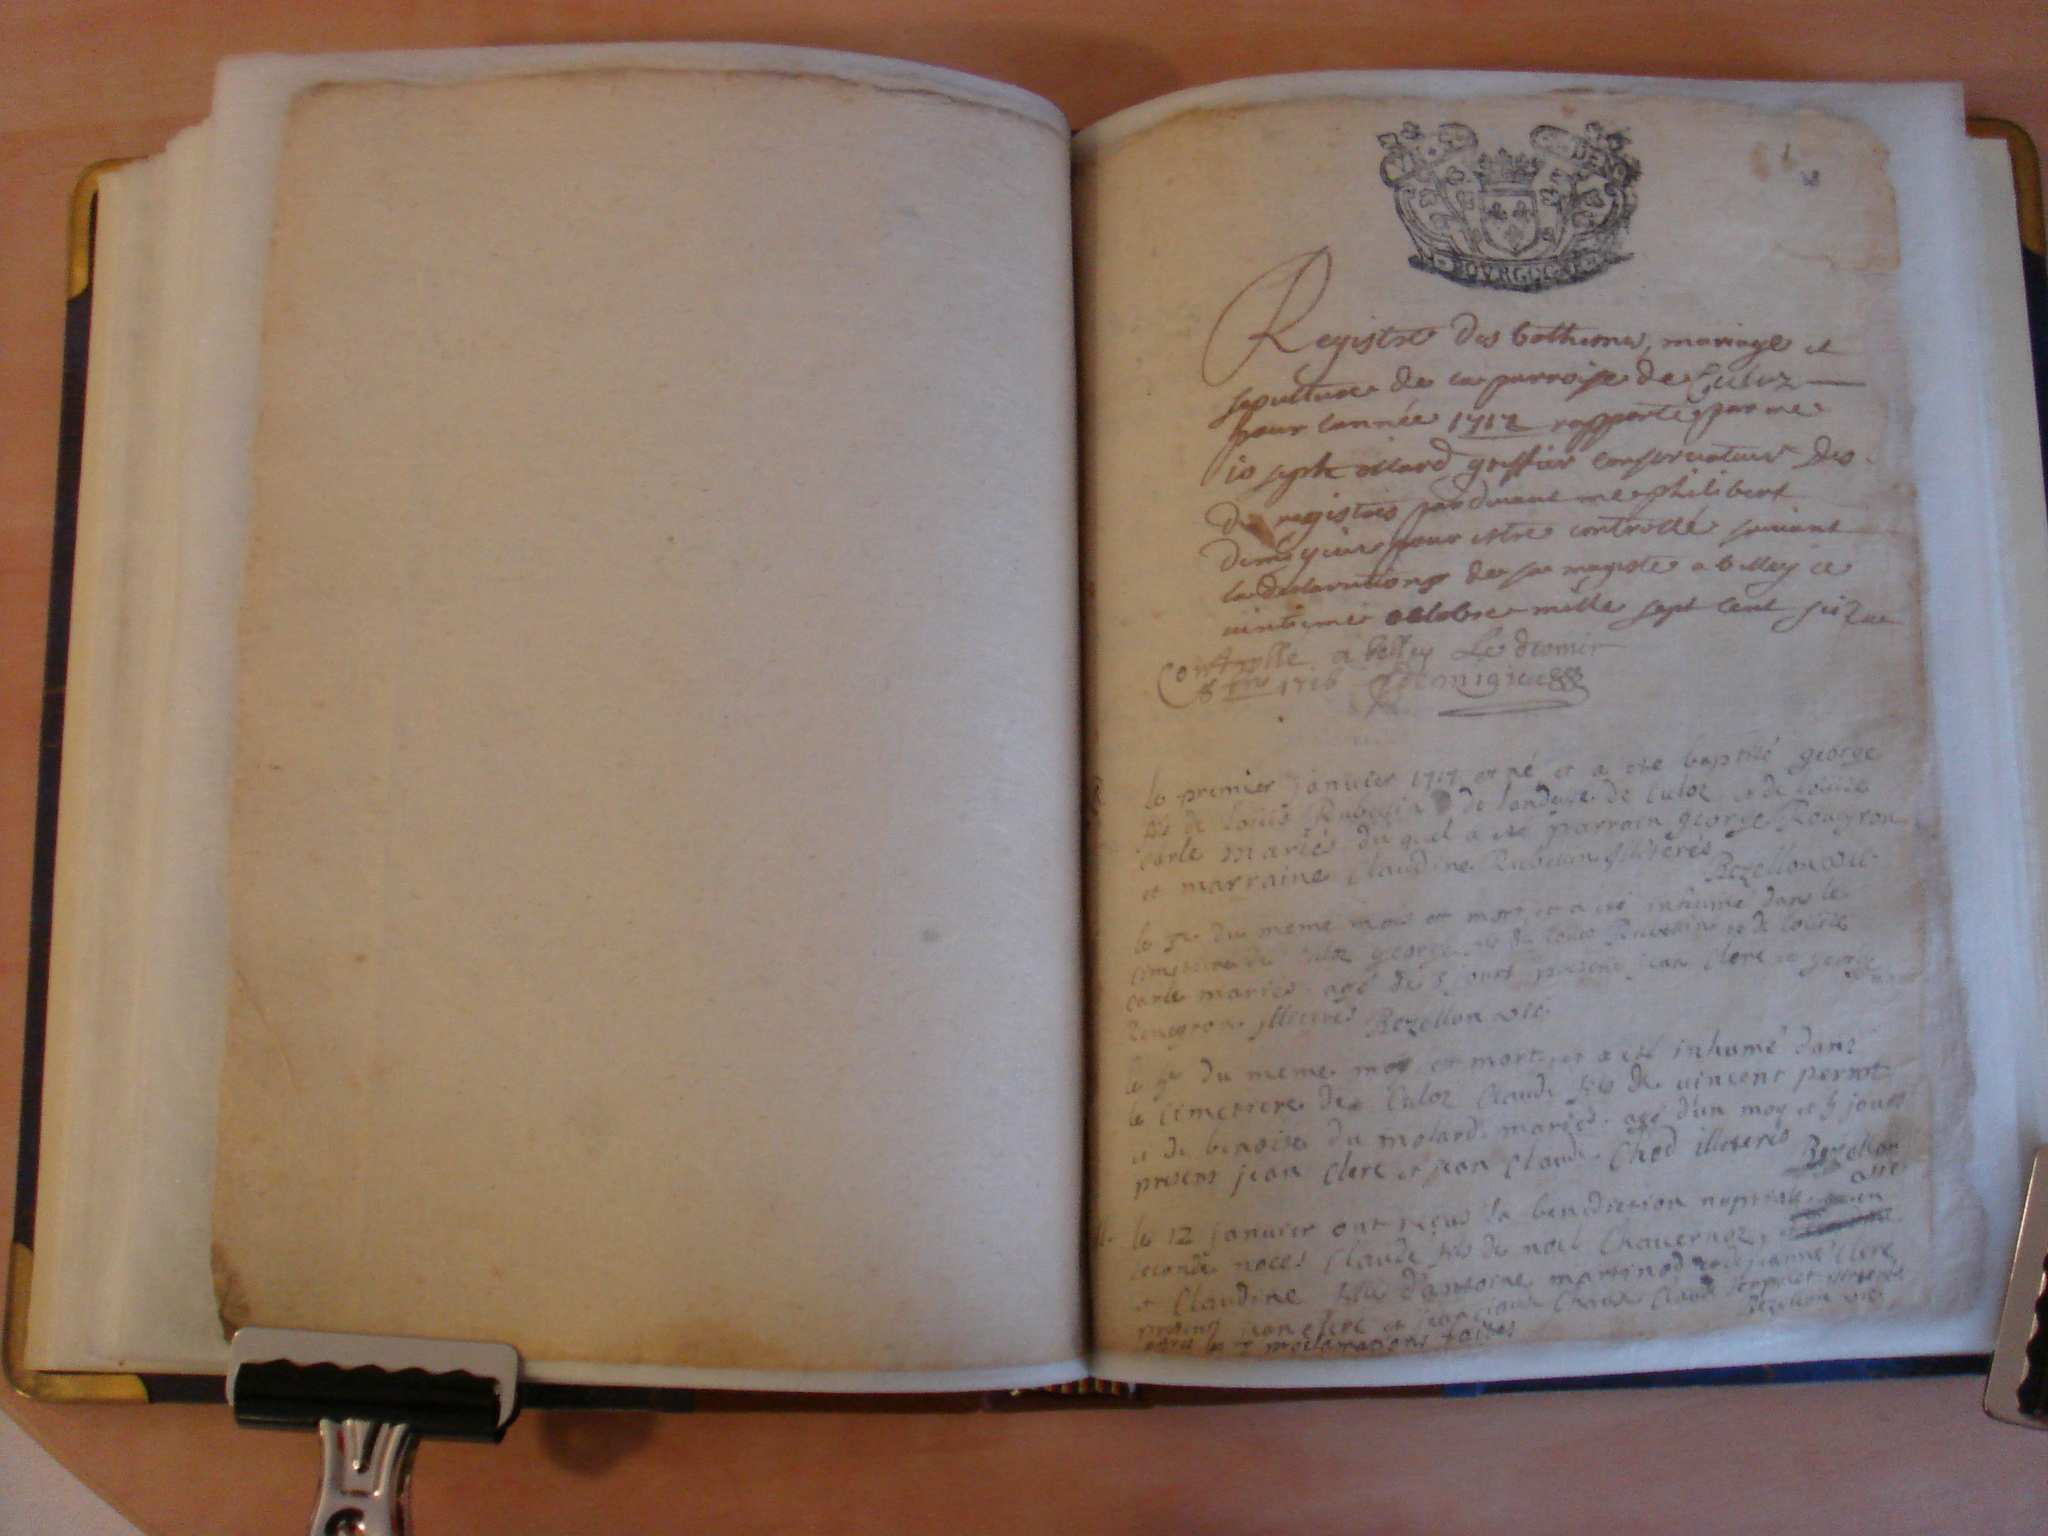 BOVRGOGNE
Registre des bathemes, mariage et
sepulture de la parroisse de Culoz
pour lannée 1717 rapporté par me
joseph greffier conservateur des
registres pardevant me philibert
pour estre controllé suivant
la declaration de sa magesté a belley ce
octobre mille sept cent seize
Controllé a belley Le
8bre 1716
le premier janvier 1717 est né et a esté baptisé george
fils de louis Rubellin de de Culoz et de louise
carle mariés duquel a été parrain george Rougron
et marraine Claudine Rubellin illiterés Bezellon vic
le 5e du meme mois est mort et a été inhumé dans le
cimetiere de Culoz george fils de louis Rubellin et de louise
carle mariés agé de 5 jours present jean Clerc et george
illiterés Bezellon vic
le du meme mois est mort et a été inhumé dans
le Cimetiere de Culoz Claude fils de vincent perrot
et de benoite du molard mariés agé d'un moy et 5 jours
present jean Clerc et jean Claude Chod illiterés Bezellon
vic
le 12 janvier ont reçus la benediction nuptiale en
seconde noces Claude fils de noel Chavernoz
et Claudine fille d'antoine martinod jeanne Clerc
presens jean clerc et Claude
Bezellon vic
proclamations faites